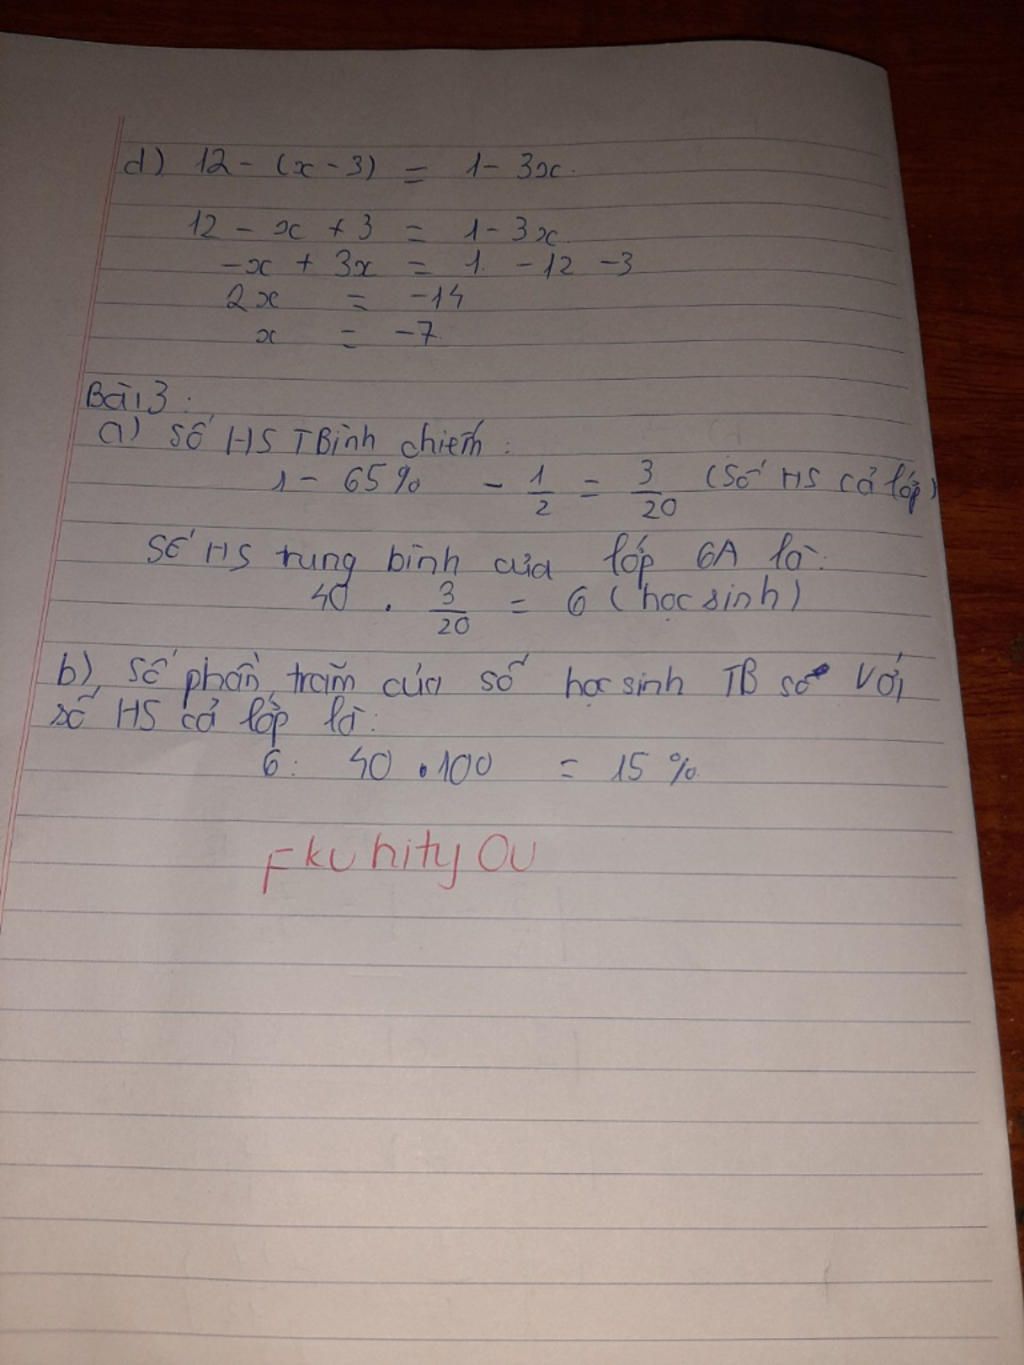 d) 12 - (x - 3) = 1 - 3x.
12 - x + 3 = 1 - 3x
-x + 3x = 1 - 12 - 3
2x = -14
x = -7
Bài 3:
a) Số HS TBình chiếm:
1 - 65% - 1/2 = 3/20 (Số HS cả lớp)
Số HS trung bình của lớp 6A là:
40 . 3/20 = 6 (học sinh)
b) Số phần trăm của số học sinh TB so với
số HS cả lớp là:
6 : 40 . 100 = 15 %
FkunityOu